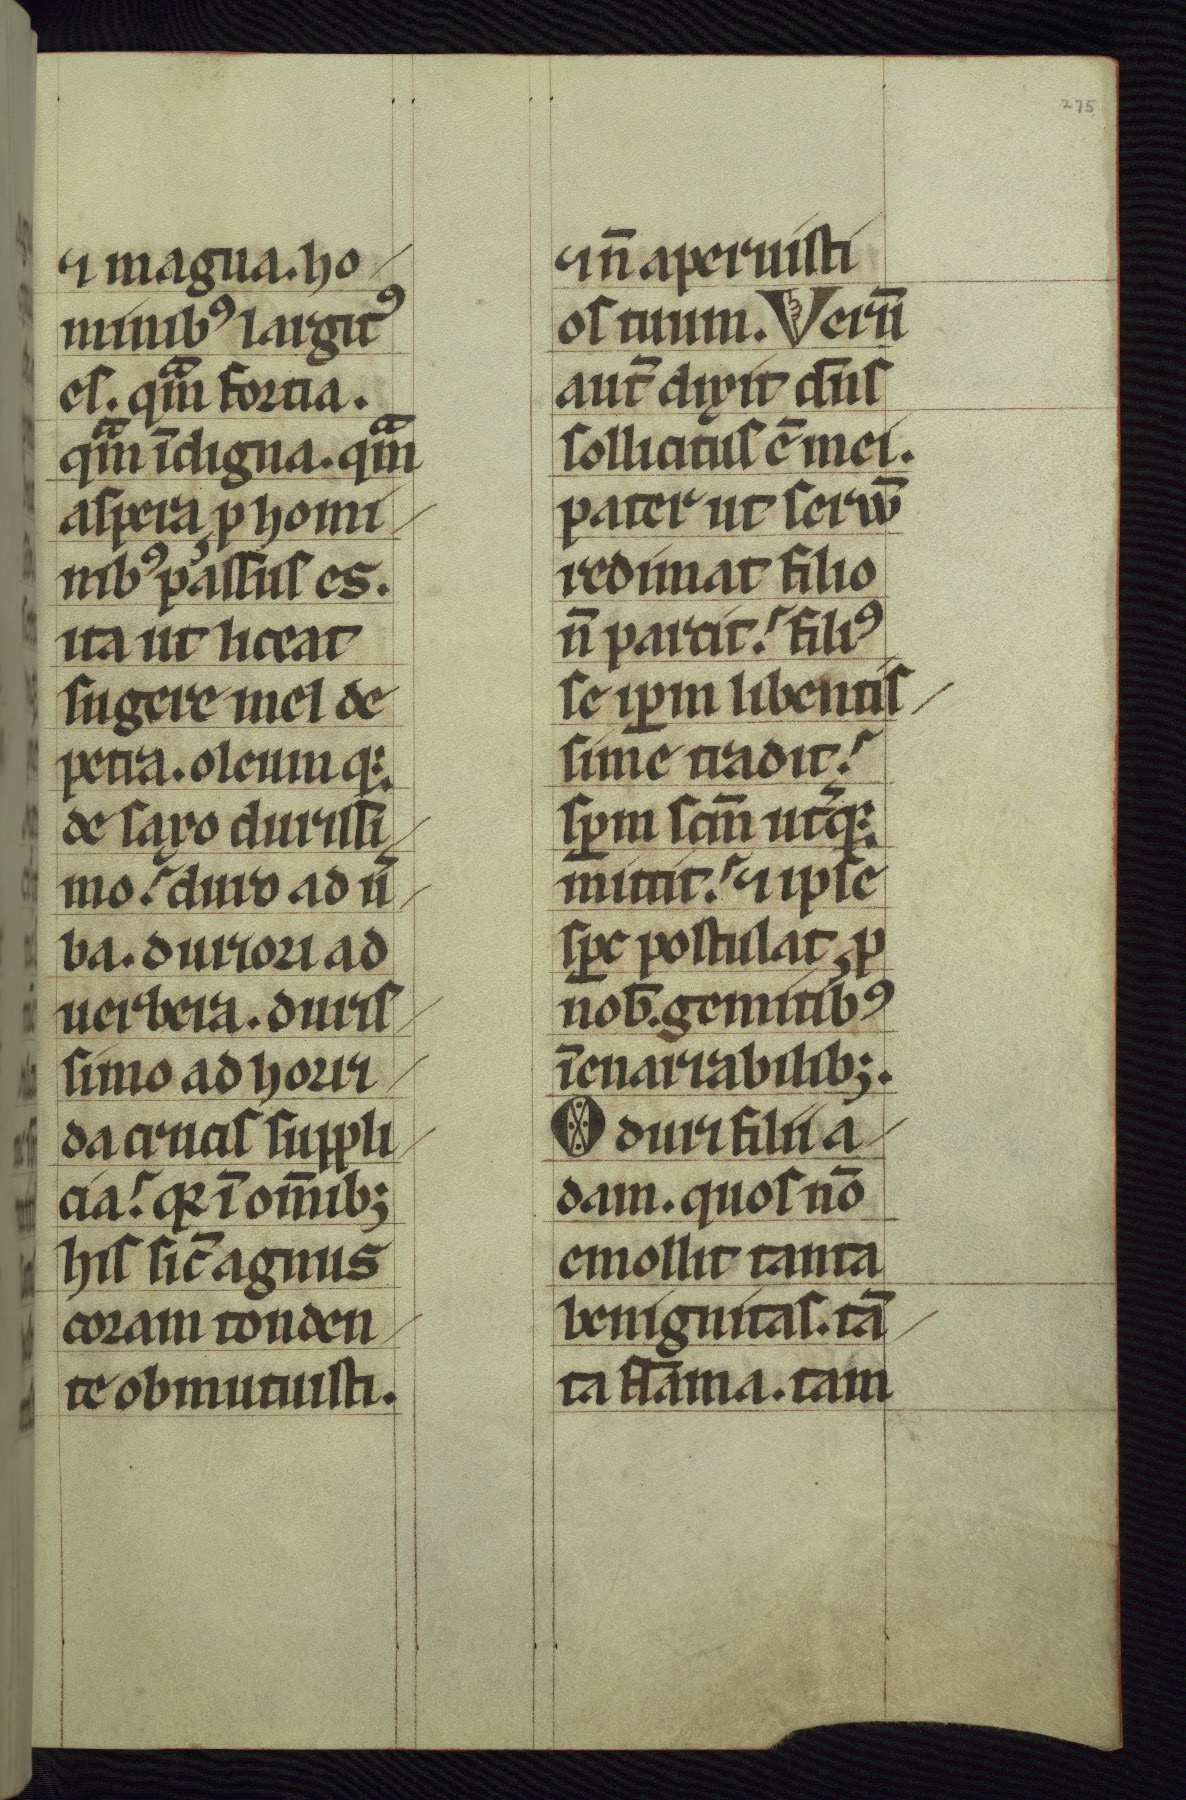 275
⁊ magna. ho
minibꝰ largitꝰ
es. qͣm fortia.
qͣm īdigna. qͣm
aspera ꝓ homi
nibꝰ ꝑassus es.
ita ut liceat
sugere mel de
petra. oleum qꝫ
de saxo durissi
mo. duro ad ũ
ba. duriori ad
uerbera. duris
simo ad horri
da crucis suppli
cia. qꝛ ī om̄ibꝫ
his sic̄ agnus
coram tonden
te obmutuisti.
⁊ n̄ aperuisti
os tuum. Verū
aut̄ dixit dn̄s
sollicitus ē mei.
pater ut seruū
redimat filio
n̄ parcit. filiꝰ
se ip̄m libentis
sime tradit.
sp̄m scm̄ ut̾qꝫ
mittit. ⁊ ipse
sp̄c postulat ꝓ
nob̄. gemitibꝰ
īenarrabilibꝫ.
O duri filii a
dam. quos nō
emollit tanta
benignitas. tā
ta flāma. tam